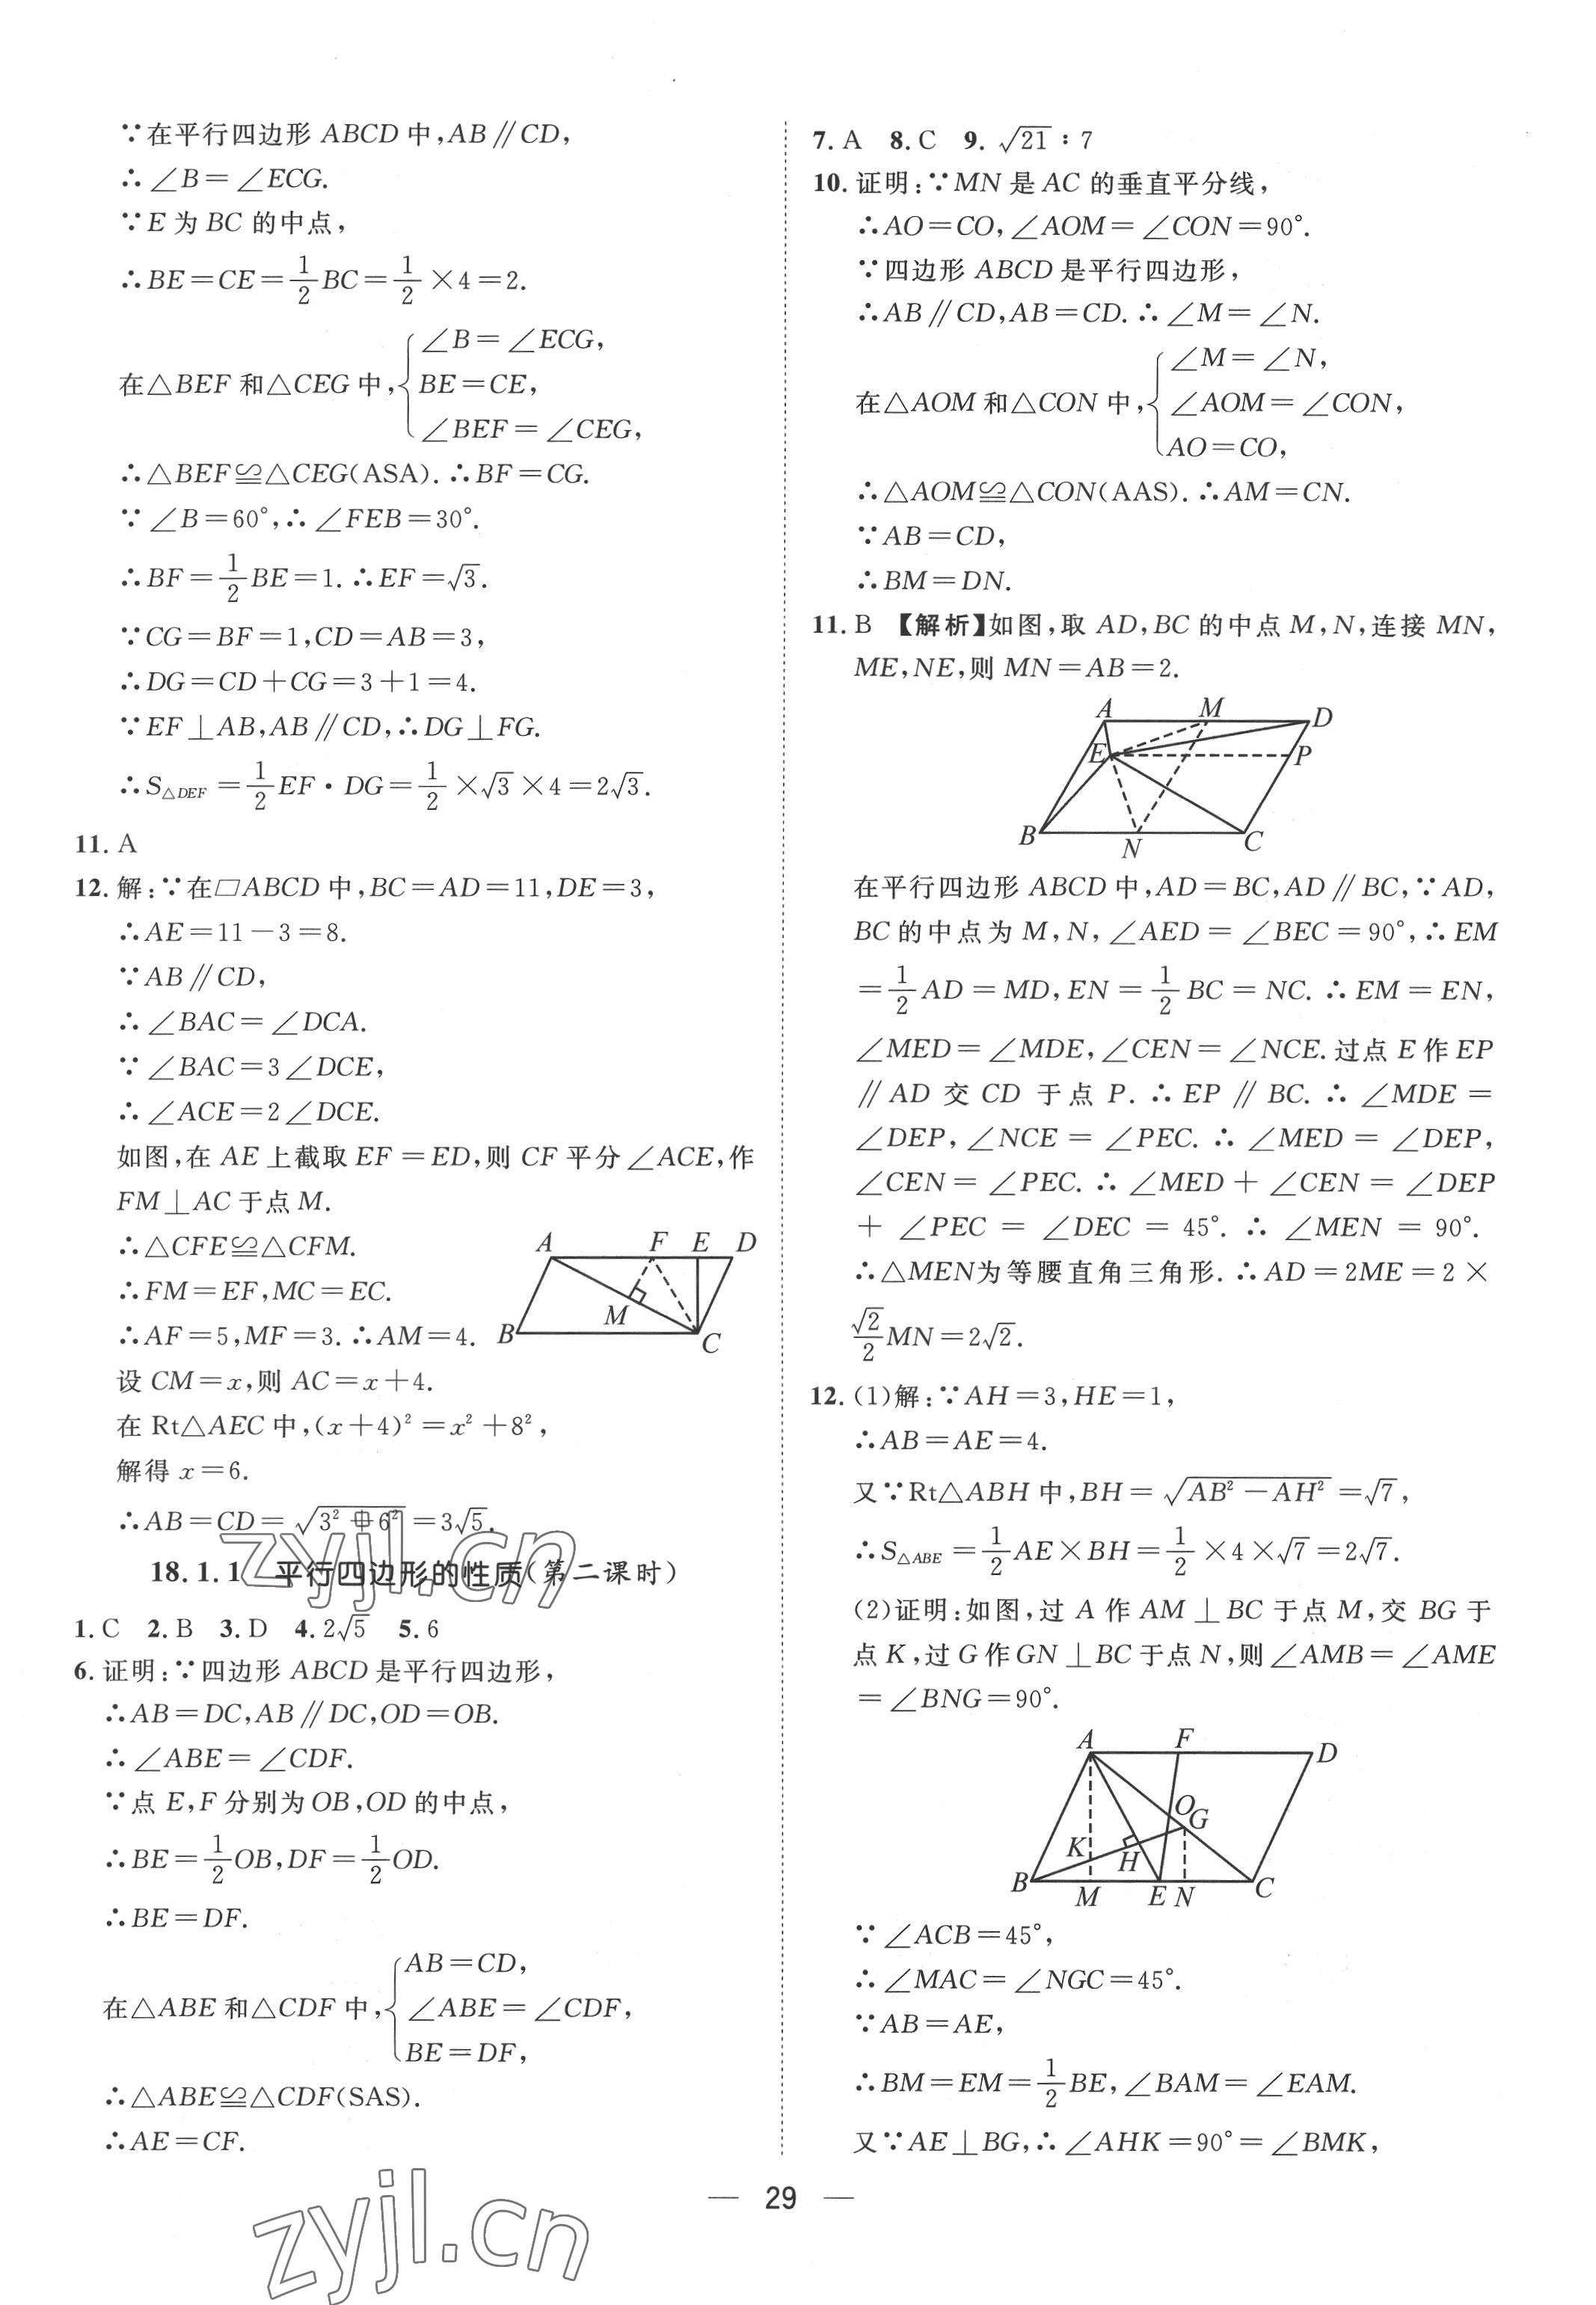 ∵在平行四边形 ABCD 中,AB∥CD,
∴∠B=∠ECG.
∵E 为 BC 的中点,
∴BE=CE=1/2 BC=1/2×4=2.
∠B=∠ECG,
在△BEF 和△CEG 中,{BE=CE,
∠BEF=∠CEG,
∴△BEF≌△CEG(ASA).∴BF=CG.
∵∠B=60°,∴∠FEB=30°.
∴BF=1/2 BE=1.∴EF=√3.
∵CG=BF=1,CD=AB=3,
∴DG=CD+CG=3+1=4.
∵EF⊥AB,AB∥CD,∴DG⊥FG.
∴S△DEF=1/2 EF·DG=1/2×√3×4=2√3.
11. A
12. 解:∵在▱ABCD 中,BC=AD=11,DE=3,
∴AE=11-3=8.
∵AB∥CD,
∴∠BAC=∠DCA.
∵∠BAC=3∠DCE,
∴∠ACE=2∠DCE.
如图,在 AE 上截取 EF=ED,则 CF 平分∠ACE,作
FM⊥AC 于点 M.
∴△CFE≌△CFM.
∴FM=EF,MC=EC.
∴AF=5,MF=3.∴AM=4.
A F E D
M
B C
设 CM=x,则 AC=x+4.
在 Rt△AEC 中,(x+4)²=x²+8²,
解得 x=6.
∴AB=CD=√(3²+6²)=3√5.
18.1.1 平行四边形的性质(第二课时)
1. C 2. B 3. D 4. 2√5 5. 6
6. 证明:∵四边形 ABCD 是平行四边形,
∴AB=DC,AB∥DC,OD=OB.
∴∠ABE=∠CDF.
∵点 E,F 分别为 OB,OD 的中点,
∴BE=1/2 OB,DF=1/2 OD.
∴BE=DF.
AB=CD,
在△ABE 和△CDF 中,{∠ABE=∠CDF,
BE=DF,
∴△ABE≌△CDF(SAS).
∴AE=CF.
7. A 8. C 9. √21∶7
10. 证明:∵MN 是 AC 的垂直平分线,
∴AO=CO,∠AOM=∠CON=90°.
∵四边形 ABCD 是平行四边形,
∴AB∥CD,AB=CD.∴∠M=∠N.
∠M=∠N,
在△AOM 和△CON 中,{∠AOM=∠CON,
AO=CO,
∴△AOM≌△CON(AAS).∴AM=CN.
∵AB=CD,
∴BM=DN.
11. B 【解析】如图,取 AD,BC 的中点 M,N,连接 MN,
ME,NE,则 MN=AB=2.
A M D
E P
B N C
在平行四边形 ABCD 中,AD=BC,AD∥BC,∵AD,
BC 的中点为 M,N,∠AED=∠BEC=90°,∴EM
=1/2 AD=MD,EN=1/2 BC=NC.∴EM=EN,
∠MED=∠MDE,∠CEN=∠NCE.过点 E 作 EP
∥AD 交 CD 于点 P.∴EP∥BC.∴∠MDE=
∠DEP,∠NCE=∠PEC.∴∠MED=∠DEP,
∠CEN=∠PEC.∴∠MED+∠CEN=∠DEP
+∠PEC=∠DEC=45°.∴∠MEN=90°.
∴△MEN为等腰直角三角形.∴AD=2ME=2×
√2/2 MN=2√2.
12. (1)解:∵AH=3,HE=1,
∴AB=AE=4.
又∵Rt△ABH 中,BH=√(AB²-AH²)=√7,
∴S△ABE=1/2 AE×BH=1/2×4×√7=2√7.
(2)证明:如图,过 A 作 AM⊥BC 于点 M,交 BG 于
点 K,过 G 作 GN⊥BC 于点 N,则∠AMB=∠AME
=∠BNG=90°.
A F D
O
G
K H
B M E N C
∵∠ACB=45°,
∴∠MAC=∠NGC=45°.
∵AB=AE,
∴BM=EM=1/2 BE,∠BAM=∠EAM.
又∵AE⊥BG,∴∠AHK=90°=∠BMK,
— 29 —
zyjl.cn
zyjl.cn